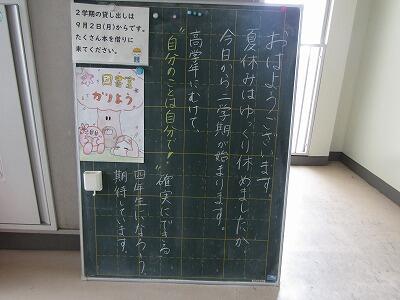 おはようございます。
夏休みはゆっくり休めましたか。
今日から二学期が始まります。
高学年にむけて、
"自分のことは自分で!"
確実にできる
四年生になろう。
期待しています。
2学期の貸し出しは
9月2日(月)からです。
たくさん本を借りに
来てください。
図書室
かりよう